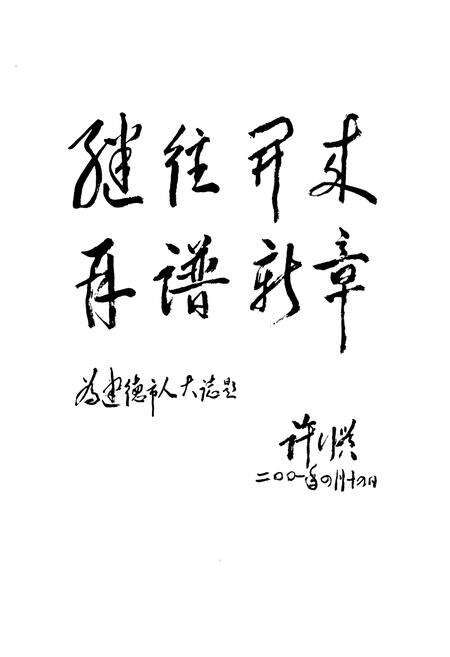 继往開来
再谱新章
為建德市人大誌题
许行贯
二〇〇一年四月十四日